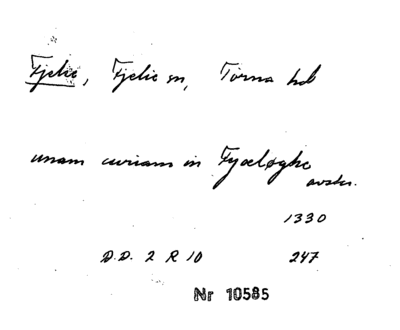 Fjelie, Fjelie sn, Torna hd
unam curiam in Fyæløghe
avskr.
1330
D.D. 2 R 10 247
Nr 10585